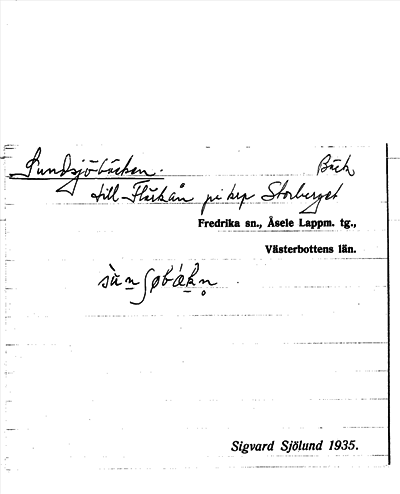 Sundsjöbäcken. Bäck
till Flärkån på krp Storberget
Fredrika sn., Åsele Lappm. tg.,
Västerbottens län.
sùn̲ʃøbák̲n̥
Sigvard Sjölund 1935.